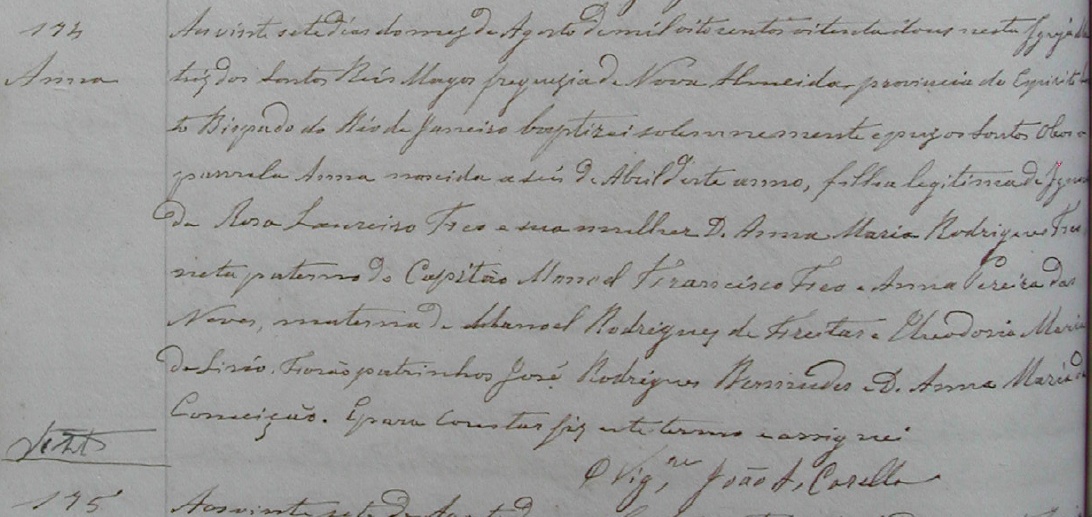 174
Anna
Aos vinte sete dias do mez de Agosto de mil oito centos oitenta e dous nesta Igreja Ma
triz dos Santos Reis Magos freguezia de Nova Almeida, provincia do Espirito San
to Bispado do Rio de Janeiro baptizei solemnemente e puz os Santos Oleos a
parvula Anna nascida a seis de Abril d'este anno, filha legitima de
da Rosa Loureiro Feo e sua mulher D. Anna Maria Rodrigues Feo
neta paterna do Capitão Manoel Francisco Feo e Anna Pereira das
Neves, materna de Manoel Rodrigues de Freitas e Theodosia Maria
de Forão patrinhos José Rodrigues Bermudes e D. Anna Maria da
Conceição. E para constar fiz este termo e assignei
O Vigr.º João
175
Aos vinte sete de Agosto d